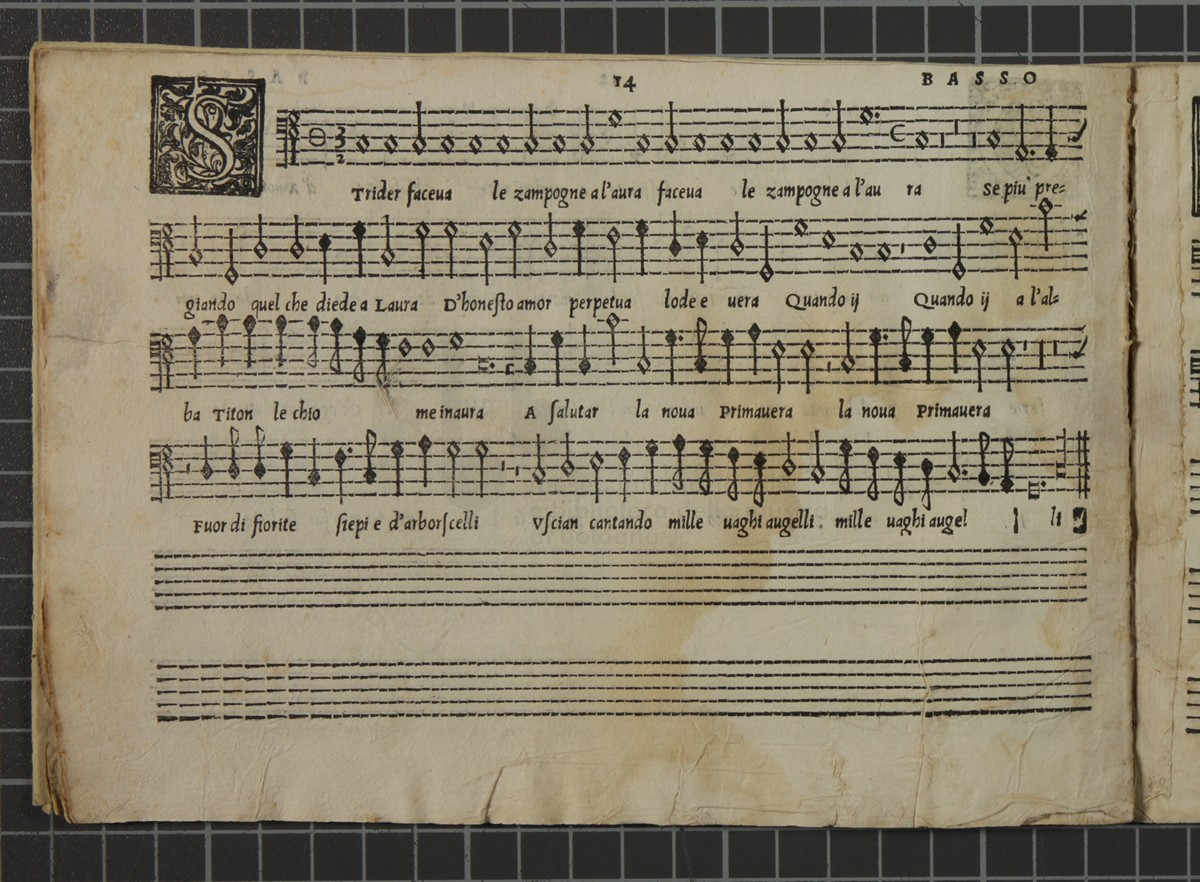 14 BASSO
STrider faceua le zampogne a l'aura faceua le zampogne a l'au ra Se piu pre=
giando quel che diede a Laura D'honesto amor perpetua lode e uera Quando ij Quando ij a l'al=
ba Titon le chio me inaura A salutar la noua Primauera la noua Primauera
Fuor di fiorite siepi e d'arborscelli Vscian cantando mille uaghi augelli. mille uaghi augel li